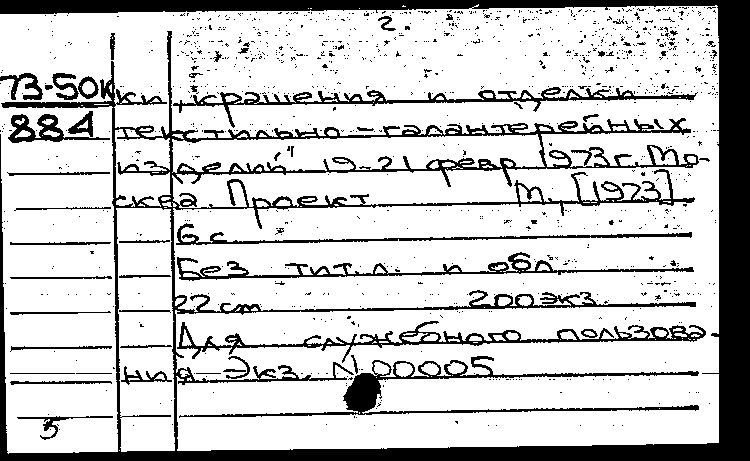 2.
73-50к
884
ки, крашения и отделки
текстильно-галантерейных
изделий". 19-21 февр. 1973г. Мо-
сква. Проект М., [1973]
6 с.
Без тит. л. и обл.
22 cm 200экз.
Для служебного пользова-
ния. Экз. N 00005
5